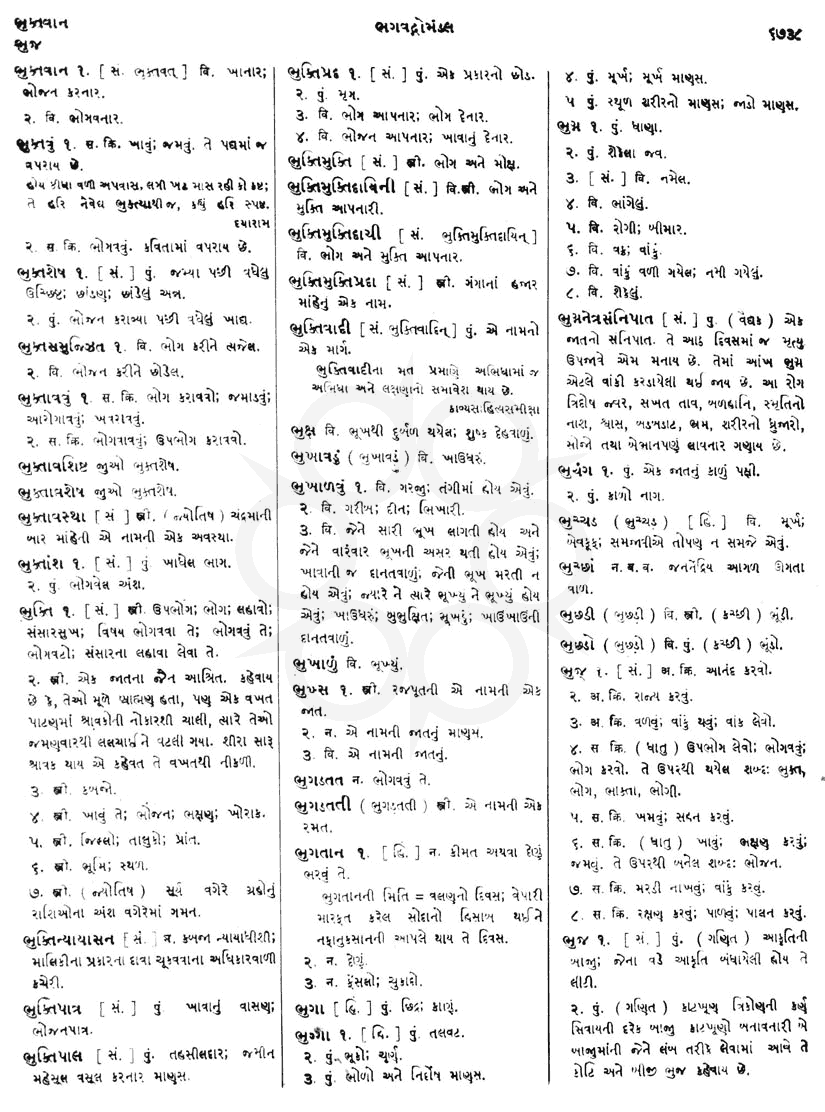 ભુક્તવાન
ભુજ
ભગવદ્ગોમંડલ
૬૭૩૮
ભુક્તવાન ૧. [ સં. ભુક્તવત્ ] વિ. ખાનાર;
ભોજન કરનાર.
૨. વિ. ભોગવનાર.
ભુક્તવું ૧. સ. ક્રિ. ખાવું; જમવું. તે પદ્યમાં જ
વપરાય છે.
હોય કીધા વળી અપવાસ, લગી ખટ માસ રહી કો કષ્ટ;
તે હરિ નેવેદ્ય ભુક્ત્યાથી જ, કહ્યું હરિ સ્પષ્ટ.
દયારામ
૨. સ. ક્રિ. ભોગવવું. કવિતામાં વપરાય છે.
ભુક્તશેષ ૧. [ સં. ] પું. જમ્યા પછી વધેલું
ઉચ્છિષ્ટ; છાંડણ; છાંડેલું અન્ન.
૨. પું. ભોજન કરાવ્યા પછી વધેલું ખાદ્ય.
ભુક્તસમુજ્ઝિત ૧. વિ. ભોગ કરીને ત્યજેલ.
૨. વિ. ભોજન કરીને છોડેલ.
ભુક્તાવવું ૧. સ. ક્રિ. ભોગ કરાવવો; જમાડવું;
આરોગાવવું; ખવરાવવું.
૨. સ. ક્રિ. ભોગવાવવું; ઉપભોગ કરાવવો.
ભુક્તાવશિષ્ટ જુઓ ભુક્તશેષ.
ભુક્તાવશેષ જુઓ ભુક્તશેષ.
ભુક્તાવસ્થા [ સં ] સ્ત્રી. ( જ્યોતિષ ) ચંદ્રમાની
બાર માંહેની એ નામની એક અવસ્થા.
ભુક્તાંશ ૧. [ સં. ] પું. ખાધેલ ભાગ.
૨. પું. ભોગવેલ અંશ.
ભુક્તિ ૧. [ સં. ] સ્ત્રી. ઉપભોગ; ભોગ; લહાવો;
સંસારસુખ; વિષય ભોગવવા તે; ભોગવવું તે;
ભોગવટો; સંસારના લહાવા લેવા તે.
૨. સ્ત્રી. એક જાતના જૈન આશ્રિત. કહેવાય
છે કે, તેઓ મૂળે બ્રાહ્મણ હતા, પણ એક વખત
પાટણમાં શ્રાવકોની નોકારશી ચાલી, ત્યારે તેઓ
જમણવારથી લલચાઈને વટલી ગયા. શીરા સારૂ
શ્રાવક થાય એ કહેવત તે વખતથી નીકળી.
૩. સ્ત્રી. કબજો.
૪. સ્ત્રી. ખાવું તે; ભોજન; ભક્ષણ; ખોરાક.
૫. સ્ત્રી. જિલ્લો; તાલુકો; પ્રાંત.
૬. સ્ત્રી. ભૂમિ; સ્થળ.
૭. સ્ત્રી. ( જ્યોતિષ ) સૂર્ય વગેરે ગ્રહોનું
રાશિઓના અંશ વગેરેમાં ગમન.
ભુક્તિન્યાયાસન [ સં. ] ન. કબજા ન્યાયાધીશી;
માલિકીના પ્રકારના દાવા ચૂકવવાના અધિકારવાળી
કચેરી.
ભુક્તિપાત્ર [ સં. ] પું. ખાવાનું વાસણ;
ભોજનપાત્ર.
ભુક્તિપાલ [ સં. ] પું. તહસીલદાર; જમીન
મહેસૂલ વસૂલ કરનાર માણસ.
ભુક્તિપ્રદ ૧. [ સં. ] પું. એક પ્રકારનો છોડ.
૨. પું. મૃગ.
૩. વિ. ભોગ આપનાર; ભોગ દેનાર.
૪. વિ. ભોજન આપનાર; ખાવાનું દેનાર.
ભુક્તિમુક્તિ [ સં. ] સ્ત્રી. ભોગ અને મોક્ષ.
ભુક્તિમુક્તિદાયિની [ સં. ] વિ.સ્ત્રી. ભોગ અને
મુક્તિ આપનારી.
ભુક્તિમુક્તિદાયી [ સં. ભુક્તિમુક્તિદાયિન્ ]
વિ. ભોગ અને મુક્તિ આપનાર.
ભુક્તિમુક્તિપ્રદા [ સં. ] સ્ત્રી. ગંગાનાં હજાર
માંહેનું એક નામ.
ભુક્તિવાદી [ સં. ભુક્તિવાદિન્ ] પું. એ નામનો
એક માર્ગ.
ભુક્તિવાદીના મત પ્રમાણે અભિધામાં જ
અભિધા અને લક્ષણાનો સમાવેશ થાય છે.
કાવ્યસાહિત્યસમીક્ષા
ભુક્ષ વિ. ભૂખથી દુર્બળ થયેલ; શુષ્ક દેહવાળું.
ભુખાવડું ( ભુખાવડું ) વિ. ખાઉધરું.
ભુખાળવું ૧. વિ. ગરજી; તંગીમાં હોય એવું.
૨. વિ. ગરીબ; દીન; ભિખારી.
૩. વિ. જેને સારી ભૂખ લાગતી હોય અને
જેને વારંવાર ભૂખની અસર થતી હોય એવું;
ખાવાની જ દાનતવાળું; જેની ભૂખ મરતી ન
હોય એવું; જ્યારે ને ત્યારે ભૂખ્યું ને ભૂખ્યું હોય
એવું; ખાઉધરું; બુભુક્ષિત; ભૂખડું; ખાઉંખાઉંની
દાનતવાળું.
ભુખાળું વિ. ભૂખ્યું.
ભુખ્સ ૧. સ્ત્રી. રજપૂતની એ નામની એક
જાત.
૨. ન. એ નામની જાતનું માણસ.
૩. વિ. એ નામની જાતનું.
ભુગડતત ન. ભોગવવું તે.
ભુગડતતી ( ભુગડતતી ) સ્ત્રી. એ નામની એક
રમત.
ભુગતાન ૧. [ હિં. ] ન. કીમત અથવા દેણું
ભરવું તે.
ભુગતાનની મિતિ = વલણનો દિવસ; વેપારી
મારફત કરેલ સોદાનો હિસાબ થઈને
નફાનુકસાનની આપલે થાય તે દિવસ.
૨. ન. દેણું.
૩. ન. ફેંસલો; ચુકાદો.
ભુગા [ હિં. ] પું. છિદ્ર; કાણું.
ભુગ્ગા ૧. [ હિં. ] પું. તલવટ.
૨. પું. ભૂકો; ચૂર્ણ.
૩. પું. ભોળો અને નિર્દોષ માણસ.
૪. પું. મૂર્ખ; મૂર્ખ માણસ.
૫ પું. સ્થૂળ શરીરનો માણસ; જાડો માણસ.
ભુગ્ન ૧. પું. ધાણા.
૨. પું. શેકેલા જવ.
૩. [ સં. ] વિ. નમેલ.
૪. વિ. ભાંગેલું.
૫. વિ. રોગી; બીમાર.
૬. વિ. વક્ર; વાંકું.
૭. વિ. વાંકું વળી ગયેલ; નમી ગયેલું.
૮. વિ. શેકેલું.
ભુગ્નનેત્રસંનિપાત [ સં. ] પું. ( વૈદ્યક ) એક
જાતનો સનિપાત. તે આઠ દિવસમાં જ મૃત્યુ
ઉપજાવે એમ મનાય છે. તેમાં આંખ ભુગ્ન
એટલે વાંકી કરડાયેલી થઈ જાય છે. આ રોગ
ત્રિદોષ જ્વર, સખત તાવ, બળહાનિ, સ્મૃતિનો
નાશ, શ્વાસ, બડબડાટ, ભ્રમ, શરીરનો ધ્રુજારો,
સોજો તથા બેભાનપણું લાવનાર ગણાય છે.
ભુચંગ ૧. પું. એક જાતનું કાળું પક્ષી.
૨. પું. કાળો નાગ.
ભુચ્ચડ ( ભુચ્ચડ઼ ) [ હિં. ] વિ. મૂર્ખ;
બેવકૂફ; સમજાવીએ તોપણ ન સમજે એવું.
ભુચ્છાં ન. બ. વ. જનનેંદ્રિય આગળ ઊગતા
વાળ.
ભુછડી ( ભુછડી ) વિ. સ્ત્રી. ( કચ્છી ) ભૂંડી.
ભુછડો ( ભુછડો ) વિ. પું. ( કચ્છી ) ભૂંડો.
ભુજ્ ૧. [ સં. ] અ. ક્રિ. આનંદ કરવો.
૨. અ. ક્રિ. રાજ્ય કરવું.
૩. અ. ક્રિ. વળવું; વાંકું થવું; વાંક લેવો.
૪. સ ક્રિ. ( ધાતુ ) ઉપભોગ લેવો; ભોગવવું;
ભોગ કરવો. તે ઉપરથી થયેલ શબ્દ: ભુક્ત,
ભોગ, ભોક્તા, ભોગી.
૫. સ. ક્રિ. ખમવું; સહન કરવું.
૬. સ. ક્રિ. ( ધાતુ ) ખાવું; ભક્ષણ કરવું;
જમવું. તે ઉપરથી બનેલ શબ્દ: ભોજન.
૭. સ. ક્રિ. મરડી નાખવું; વાંકું કરવું.
૮. સ. ક્રિ. રક્ષણ કરવું; પાળવું; પાલન કરવું.
ભુજ ૧. [ સં. ] પું. ( ગણિત ) આકૃતિની
બાજુ; જેના વડે આકૃતિ બંધાયેલી હોય તે
લીટી.
૨. પું. ( ગણિત ) કાટખૂણ ત્રિકોણની કર્ણ
સિવાયની દરેક બાજુ કાટખૂણો બનાવનારી બે
બાજુમાંની જેને લંબ તરીકે લેવામાં આવે તે
કોટિ અને બીજી ભુજ કહેવાય છે.